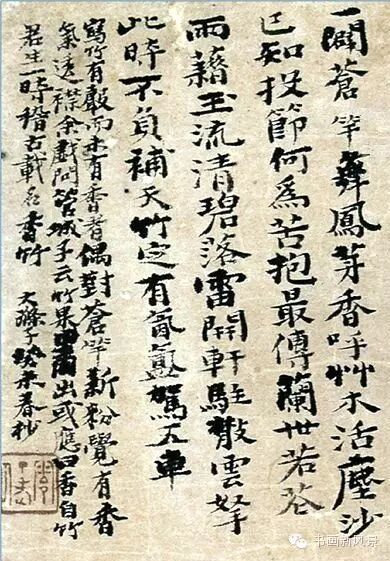 一闢蒼竿舞鳳芽香呼艸木活塵沙
已知投節何爲苦抱最傳蘭世若花
雨藉玉流清碧落雷開軒駐散雲拏
此時不負補天竹定有氤氳駕五車
寫竹有而未有香者偶對蒼竿新粉覺有香
氣透襟余戲問管城子云竹果出或應曰香自竹
君生一時稽古載名香竹 大滌子癸未春杪
书画新风景